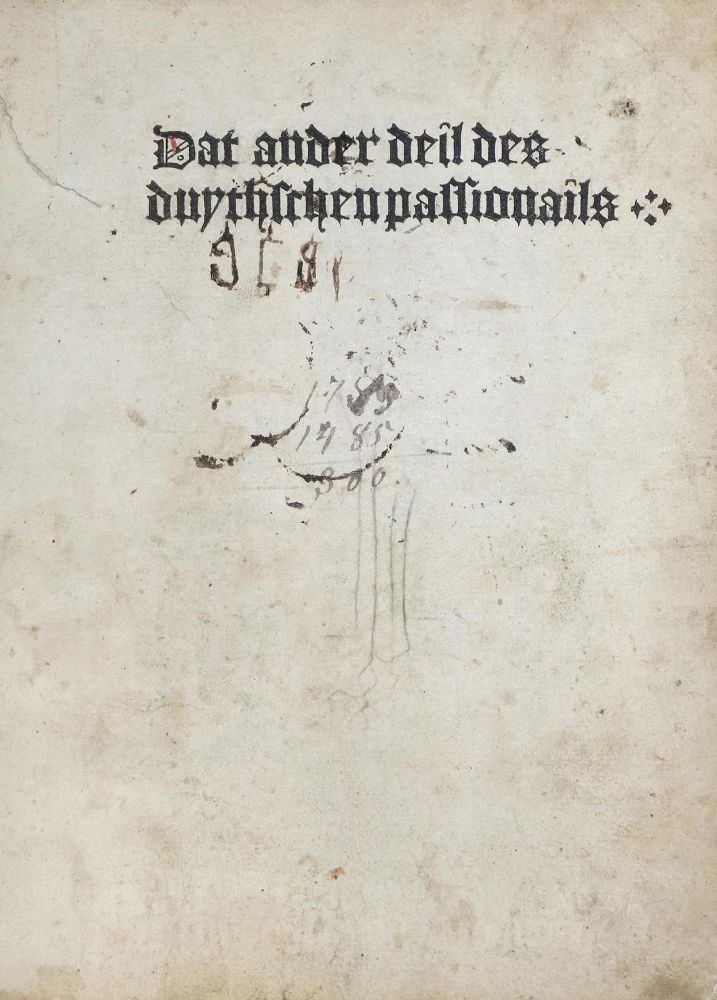 Dat ander deil des
duythſchen paſſionails
1789
1485
300